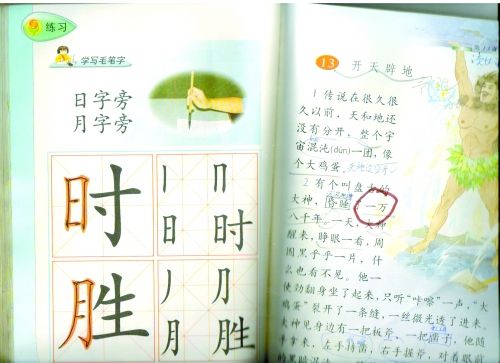 练习
学写毛笔字
日字旁
月字旁
时
日
时
胜
月
胜
13 开天辟地
1 传说在很久很
久以前，天和地还
没有分开，整个宇
宙混沌(dùn)一团，像
个大鸡蛋。
2 有个叫盘古的
大神，昏睡了一万
八千年。一天，大神
醒来，睁眼一看，周
围黑乎乎一片，什
么也看不见。他一
使劲翻身坐了起来，只听“咔嚓”一声，“大
鸡蛋”裂开了一条缝，一丝微光透了进来。
大神见身边有一把板斧，一把凿子，他随
手拿来，左手持凿，右手握斧，对着眼前